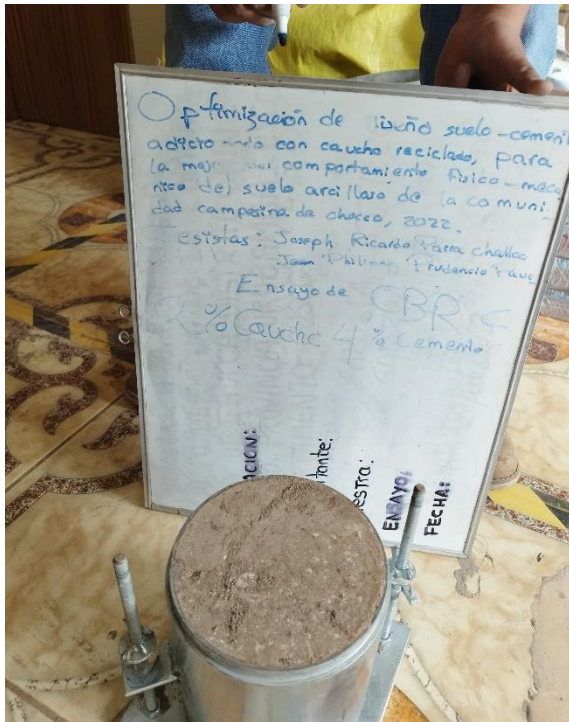 Optimización de suelo-cement
con caucho reciclado, para
la comportamiento físico-meca
nico del suelo arcilloso de la comuni
dad campesina de chocco, 2022.
Tesistas: Joseph Ricardo Parra Challco
Jean Prudencio
Ensayo de CBR
2% Caucho 4% Cemento
ACION:
tante:
estra:
ENSAYO:
FECHA: